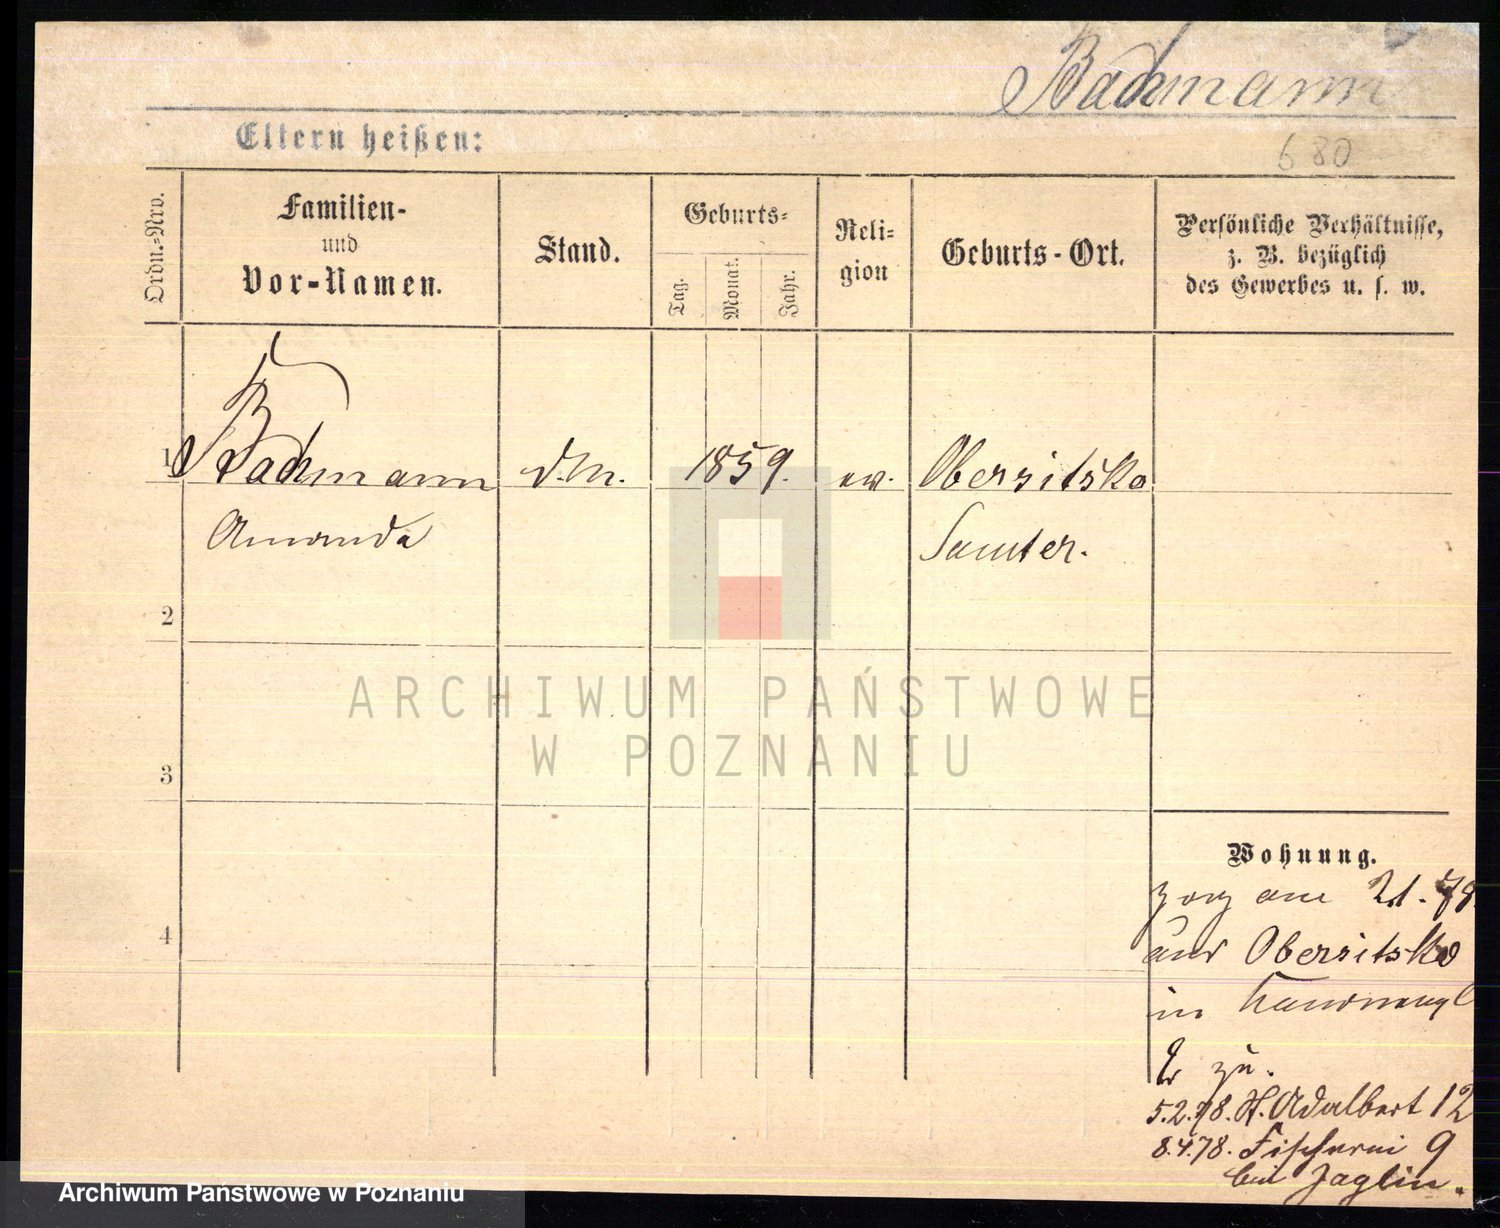 Bachmann
Eltern heißen:
680
Ordn.-Nro.
Familien-
und
Vor-Namen.
Stand.
Geburts-
Tag.
Monat.
Jahr.
Reli-
gion
Geburts-Ort.
Persönliche Verhältnisse,
z. B. bezüglich
des Gewerbes u. s. w.
1 Bachmann d.M. 1859. ev. Obersitzko
Amanda Samter.
2
3
4
ARCHIWUM PAŃSTWOWE
W POZNANIU
Wohnung.
zog am 2.1.78
aus Obersitzko
in
zu.
5.2.78. St. Adalbert 12
8.4.78. Fischerei 9
bei Jaglin.
Archiwum Państwowe w Poznaniu